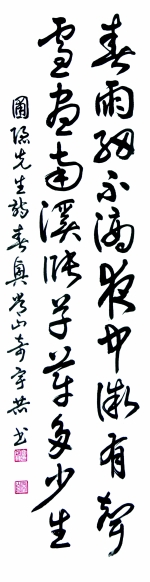 春雨細不滴夜中微有聲
雪盡南溪漲草芽多少生
圃隱先生詩春興山奇宇恭書